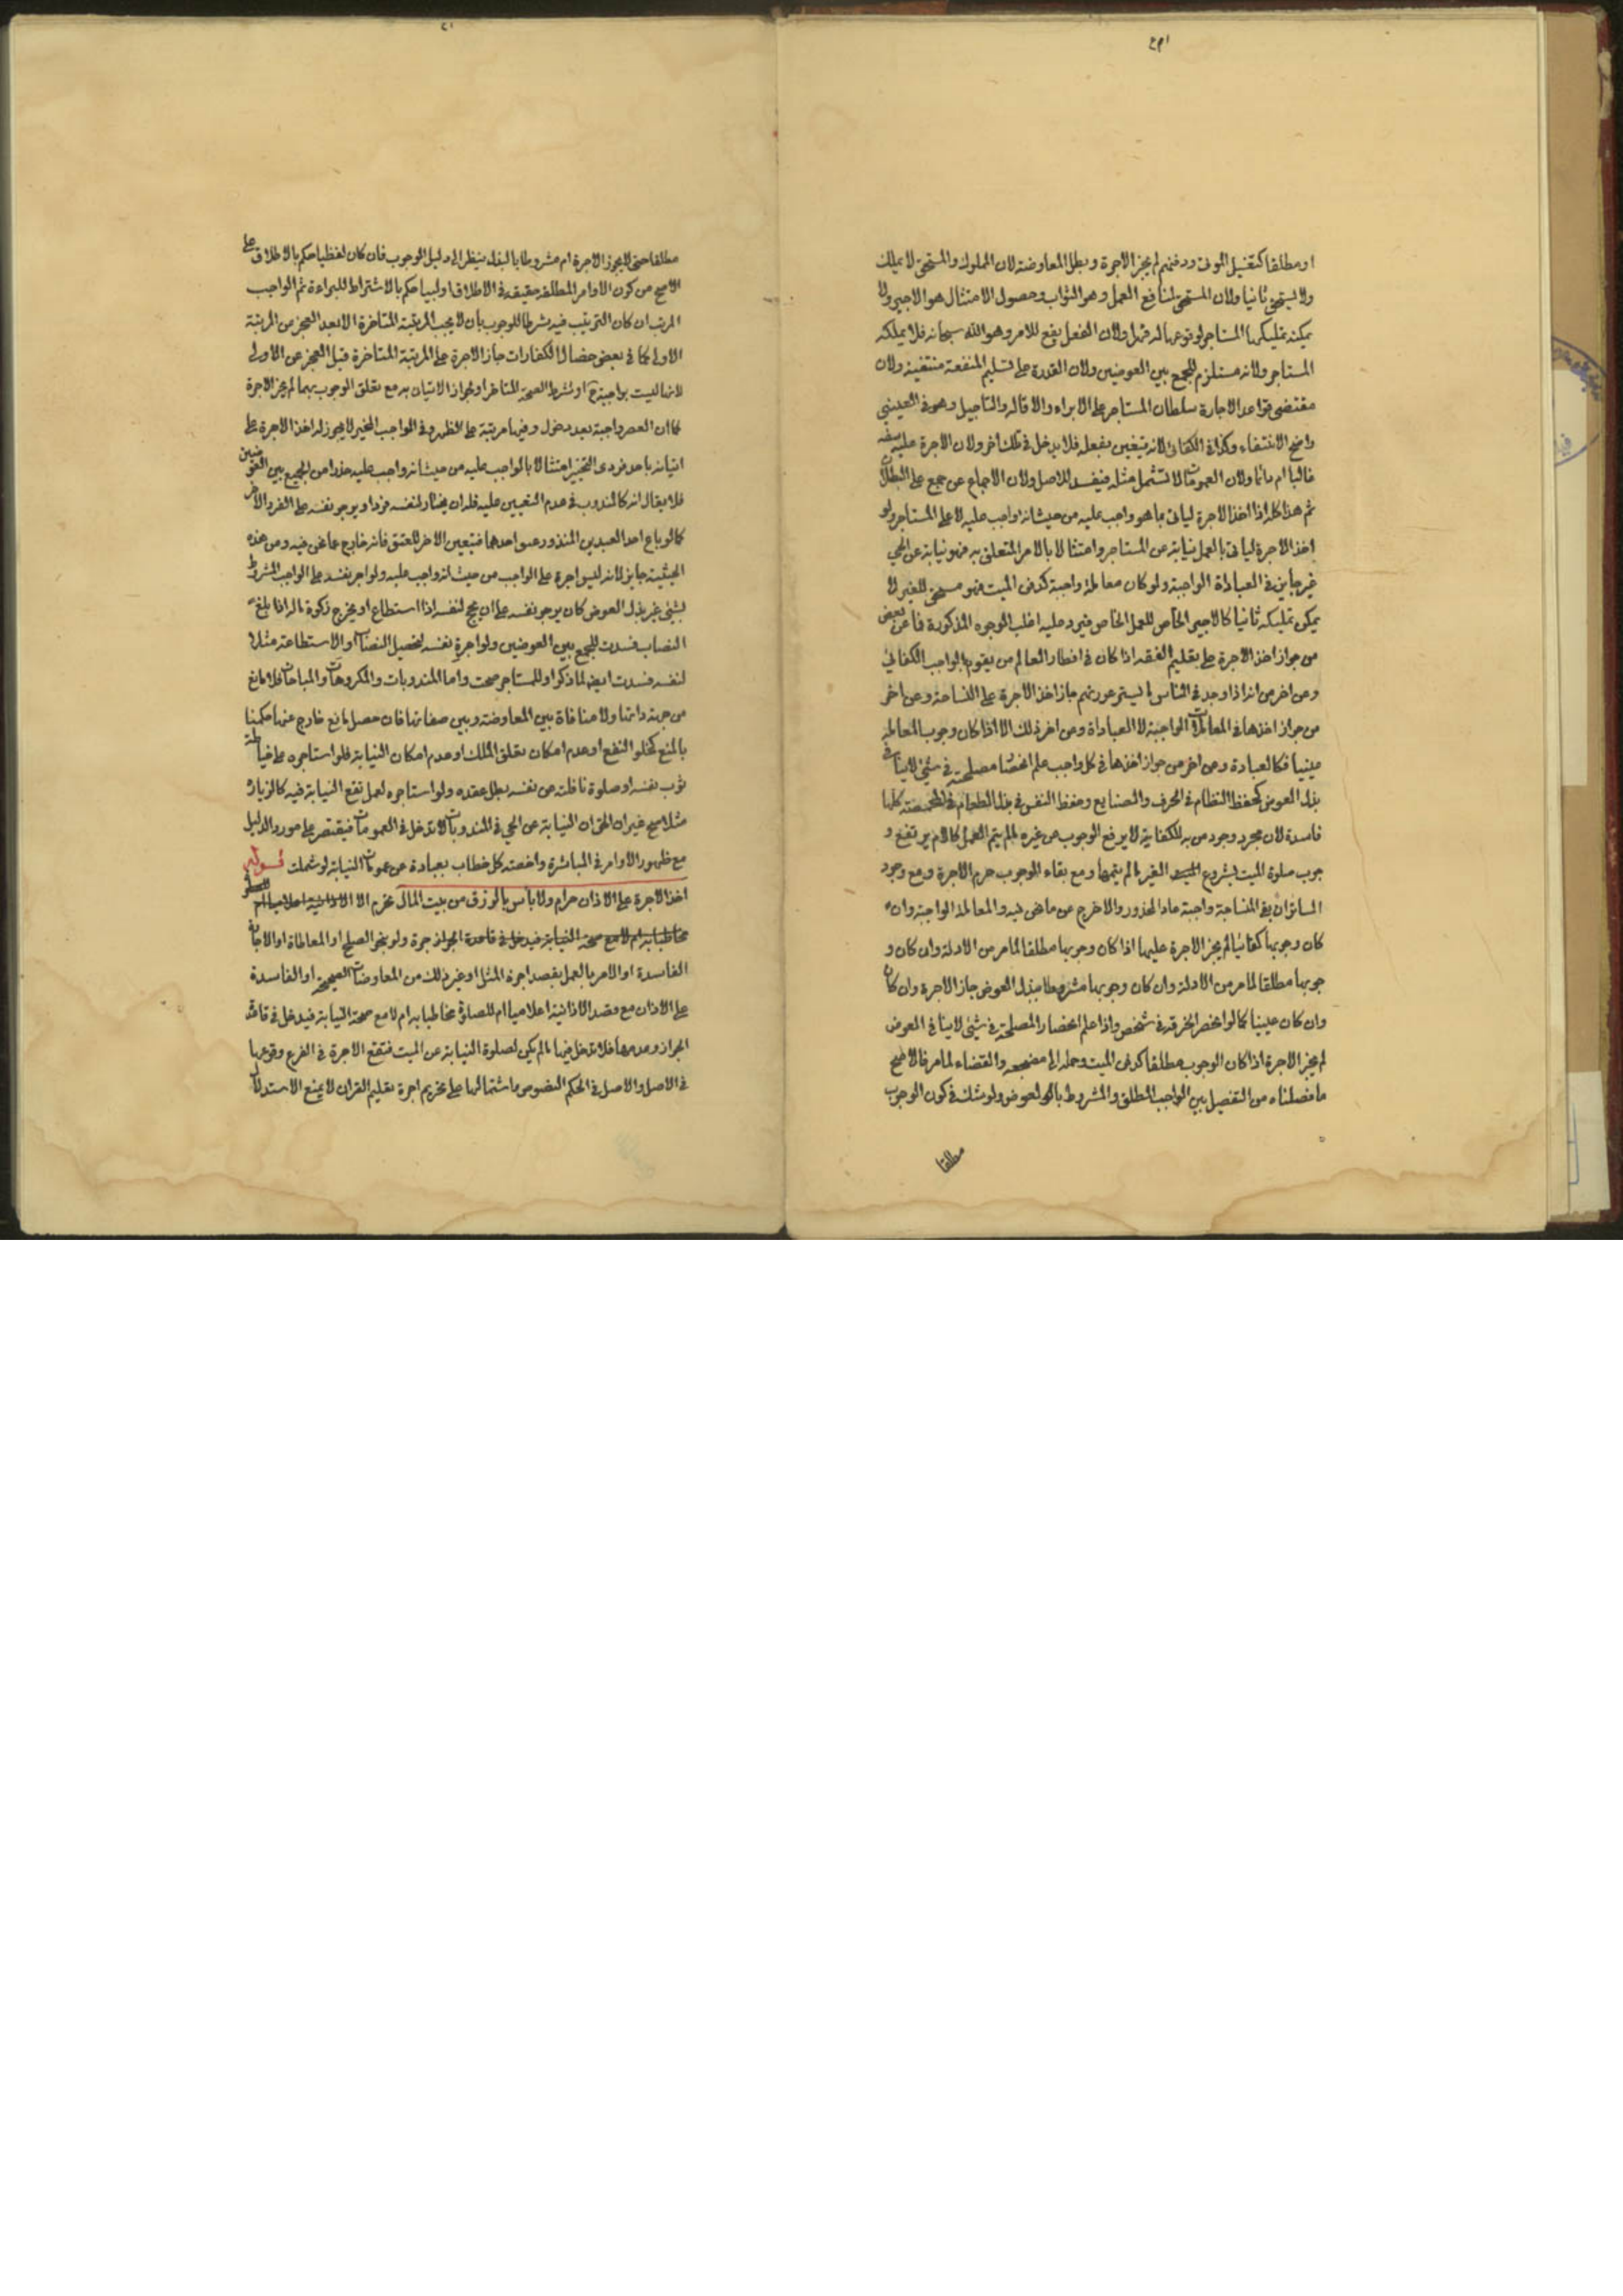 او مطلقا كتغسيل الموتى ودفنهم لم يجز الاجرة وبطل المعاوضة لان المملوك والمستحق لا يملك
ولا يستحق ثانيا ولان المستحق لمنافع العمل وهو الثواب وحصول الامتثال هو الاجير ولا
يمكنه تمليكها المستاجر لوقوعها له قهرا ولان الفعل يقع للامر وهو الله سبحانه فلا يملكه
المستاجر ولانه مستلزم للجمع بين العوضين ولان القدرة على تسليم المنفعة منتفية ولان
مقتضى قواعد الاجارة سلطان المستاجر على الابراء والاقالة والتاجيل وهو في العيني
واضح الانتفاء وكذا في الكفائي لانه يتعين بفعله فلا يدخل في ملك اخر ولان الاجرة عليه سفه
غالبا ام دائما ولان العمومات لا تشمل مثله فيفسد للاصل ولان الاجماع عن جمع على البطلان
ثم هذا كله اذا اخذ الاجرة لياتي بما هو واجب عليه من حيث انه واجب عليه لا على المستاجر ولو
اخذ الاجرة لياتي بالعمل نيابة عن المستاجر وامتثالا بالامر المتعلق به فهو نيابة عن الحي
غير جايز في العبادة الواجبة ولو كان معاملة واجبة كدفن الميت فهو مستحق للغير لا
يمكن تمليكه ثانيا كالاجير الخاص للعمل الخاص فيرد عليه اغلب الوجوه المذكورة فما عن بعض
من جواز اخذ الاجرة على تعليم الفقه اذا كان في اقطار العالم من يقوم بالواجب الكفائي
وعن اخر من انه اذا وجد في الناس ما يستر عورتهم جاز اخذ الاجرة على النساجة وعن اخر
من جواز اخذها في المعاملات الواجبة لا العبادات ومن اخر ذلك الا اذا كان وجوب المعاملة
عينيا فكالعبادة وعن اخر من جواز اخذها في كل واجب علم انحصار مصلحته في شيء لا ينافي
بذل العوض كحفظ النظام في الحرف والصنايع وحفظ النفس في بذل الطعام في المخمصة كلها
فاسدة لان مجرد وجود من به الكفاية لا يرفع الوجوب عن غيره ما لم يتم العمل كما لا يرتفع و
جوب صلوة الميت بشروع الغير ما لم يتمها ومع بقاء الوجوب حرم الاجرة ومع وجود
الساتر ان بقي النساجة واجبة عاد المحذور والا خرج عن ما نحن فيه والمعاملة الواجبة وان
كان وجوبها كفائيا لم يجز الاجرة عليها اذا كان وجوبها مطلقا لما مر من الادلة وان كان و
جوبها مطلقا لما مر من الادلة وان كان وجوبها مشروطا ببذل العوض جاز الاجرة وان كان
وان كان عينيا كما لو انحصر الحرفة في شخص واذا علم انحصار المصلحة في شيء لا ينافي العوض
لم يجز الاجرة اذا كان الوجوب مطلقا كدفن الميت وحمله الى مضجعه والقضاء لما مر فالاصح
ما فصلناه من التفصيل بين الواجب المطلق والمشروط بالعوض ولو شك في كون الوجوب
مطلقا
مطلقا حتى لا يجوز الاجرة ام مشروطا بالبذل ينظر الى دليل الوجوب فان كان لفظيا حكم بالاطلاق على
الاصح من كون الاوامر المطلقة حقيقة في الاطلاق او لبيا حكم بالاشتراط للبراءة ثم الواجب
المرتب ان كان الترتيب فيه شرطا للوجوب بان لا يجب المرتبة المتاخرة الا بعد العجز من المرتبة
الاولى كما في بعض خصال الكفارات جاز الاجرة على المرتبة المتاخرة قبل العجز عن الاولى
لانها ليست بواجبة ح او شرط الصحة المتاخر او لجواز الاتيان به مع تعلق الوجوب بهما لم يجز الاجرة
كما ان العصر واجبة بعد دخول وقتها مرتبة على الظهر وفي الواجب المخير لا يجوز له اخذ الاجرة على
اتيانه باحد فردي التخيير امتثالا بالواجب عليه من حيث انه واجب عليه حذرا من الجمع بين العوضين
فلا يقال انه كالمندوب في عدم التعيين عليه فله ان يختار لنفسه فردا ويوجر نفسه على الفرد الاخر
كما لو باع احد العبدين المنذور عتق احدهما فيتعين الاخر للعتق فانه خارج عما نحن فيه ومن هذه
الحيثية جايز لانه ليس اجرة على الواجب من حيث انه واجب عليه ولو اجر نفسه على الواجب المشروط
بشيء غير بذل العوض كان يوجر نفسه على ان يحج لنفسه اذا استطاع او يخرج زكوة ماله اذا بلغ
النصاب فسدت للجمع بين العوضين ولو اجر نفسه لتحصيل النصاب او الاستطاعة مثلا
لنفسه فسدت ايضا لما ذكر او للمستاجر صحت واما المندوبات والمكروهات والمباحات فلا مانع
من جهة ذاتها ولا منافاة بين المعاوضة وبين صفاتها فان حصل مانع خارج عنها حكمنا
بالمنع كخلو النفع او عدم امكان تعلق الملك او عدم امكان النيابة فلو استاجره على خياطة
ثوب نفسه او صلوة نافلته عن نفسه بطل عقده ولو استاجره لعمل تقع النيابة فيه كالزيارة
مثلا صح غير ان الحق ان النيابة عن الحي في المندوبات لا تدخل في العمومات فيقتصر على مورد الدليل
مع ظهور الاوامر في المباشرة واخصية كل خطاب بعبادة عن عمومات النيابة لو شملت قوله
اخذ الاجرة على الاذان حرام ولا باس بالرزق من بيت المال تحرم الا
الفاسدة او الامر بالعمل بقصد اجرة المثل او غير ذلك من المعاوضات الصحيحة او الفاسدة
على الاذان مع قصد الاذانية اعلاميا ام للصلوة مخاطبا به ام لا مع صحة النيابة فيدخل في قاعدة
الجواز وعدمها فلا تدخل فيها ما لم يكن لصلوة النيابة عن الميت فتقع الاجرة في الفرع وقوعها
في الاصل والاصل في الحكم النصوص واشتمالها على تحريم اجرة تعليم القران لا يمنع الاستدلال